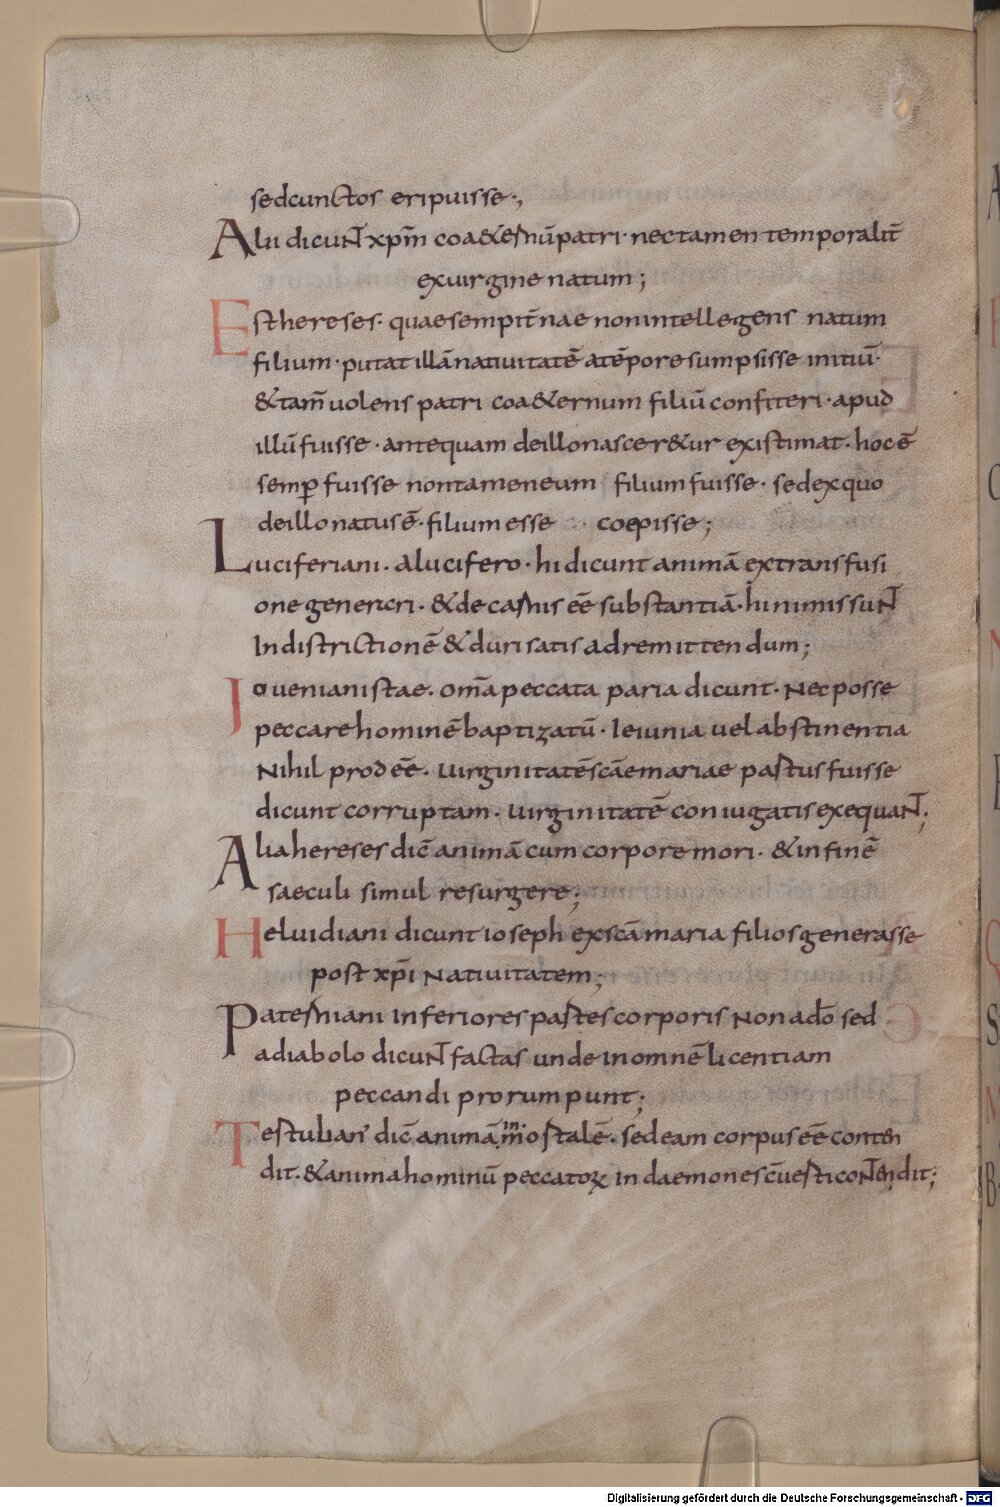 sedcunctos eripuisse·,
Alii dicuNT̄ xp̄m coa&ernū patri· nectamen temporalit̄
exuirgine natum;
Esthereses· quae sempit̄nae nonintellegens natum
filium· putat illā natiuitatē atēpore sumpsisse initiū·
&tam̄ uolens patri coa&ernum filiū confiteri· apud
illū fuisse· antequam deillo nascer&ur existimat· hoc ē
semꝑ fuisse nontamen eum filium fuisse· sed exquo
deillo natus ē· filium esse coepisse;
Luciferiani· a lucifero· hi dicunt animā extransfusi
one genercri· & de carnis eē substantiā· hi nimis suNT̄
Indistrictionē & duri satis adremittendum;
Iouenianistae· om̄a peccata paria dicunt· Nec posse
peccare hominē baptizatū· Ieiunia uel abstinentia
Nihil prodeē· uirginitatē scāe mariae partus fuisse
dicunt corruptam· uirginitatē coniugatis exequaNT̄;
Alia hereses dic̄ animā cum corpore mori· & in finē
saeculi simul resurgere;
Heluidiani dicunt ioseph ex scā maria filios generasse
post xp̄i Natiuitatem;
Paterniani inferiores partes corporis Non a dō sed
a diabolo dicuNT̄ factas unde in omnē licentiam
peccandi prorumpunt;
Tertuliani dic̄ animā inm̄ortalē· sed eam corpus eē conten
dit· & anima hominū peccatoꝝ in daemones c̄uerti coNT̄endit;
Digitalisierung gefördert durch die Deutsche Forschungsgemeinschaft - DFG